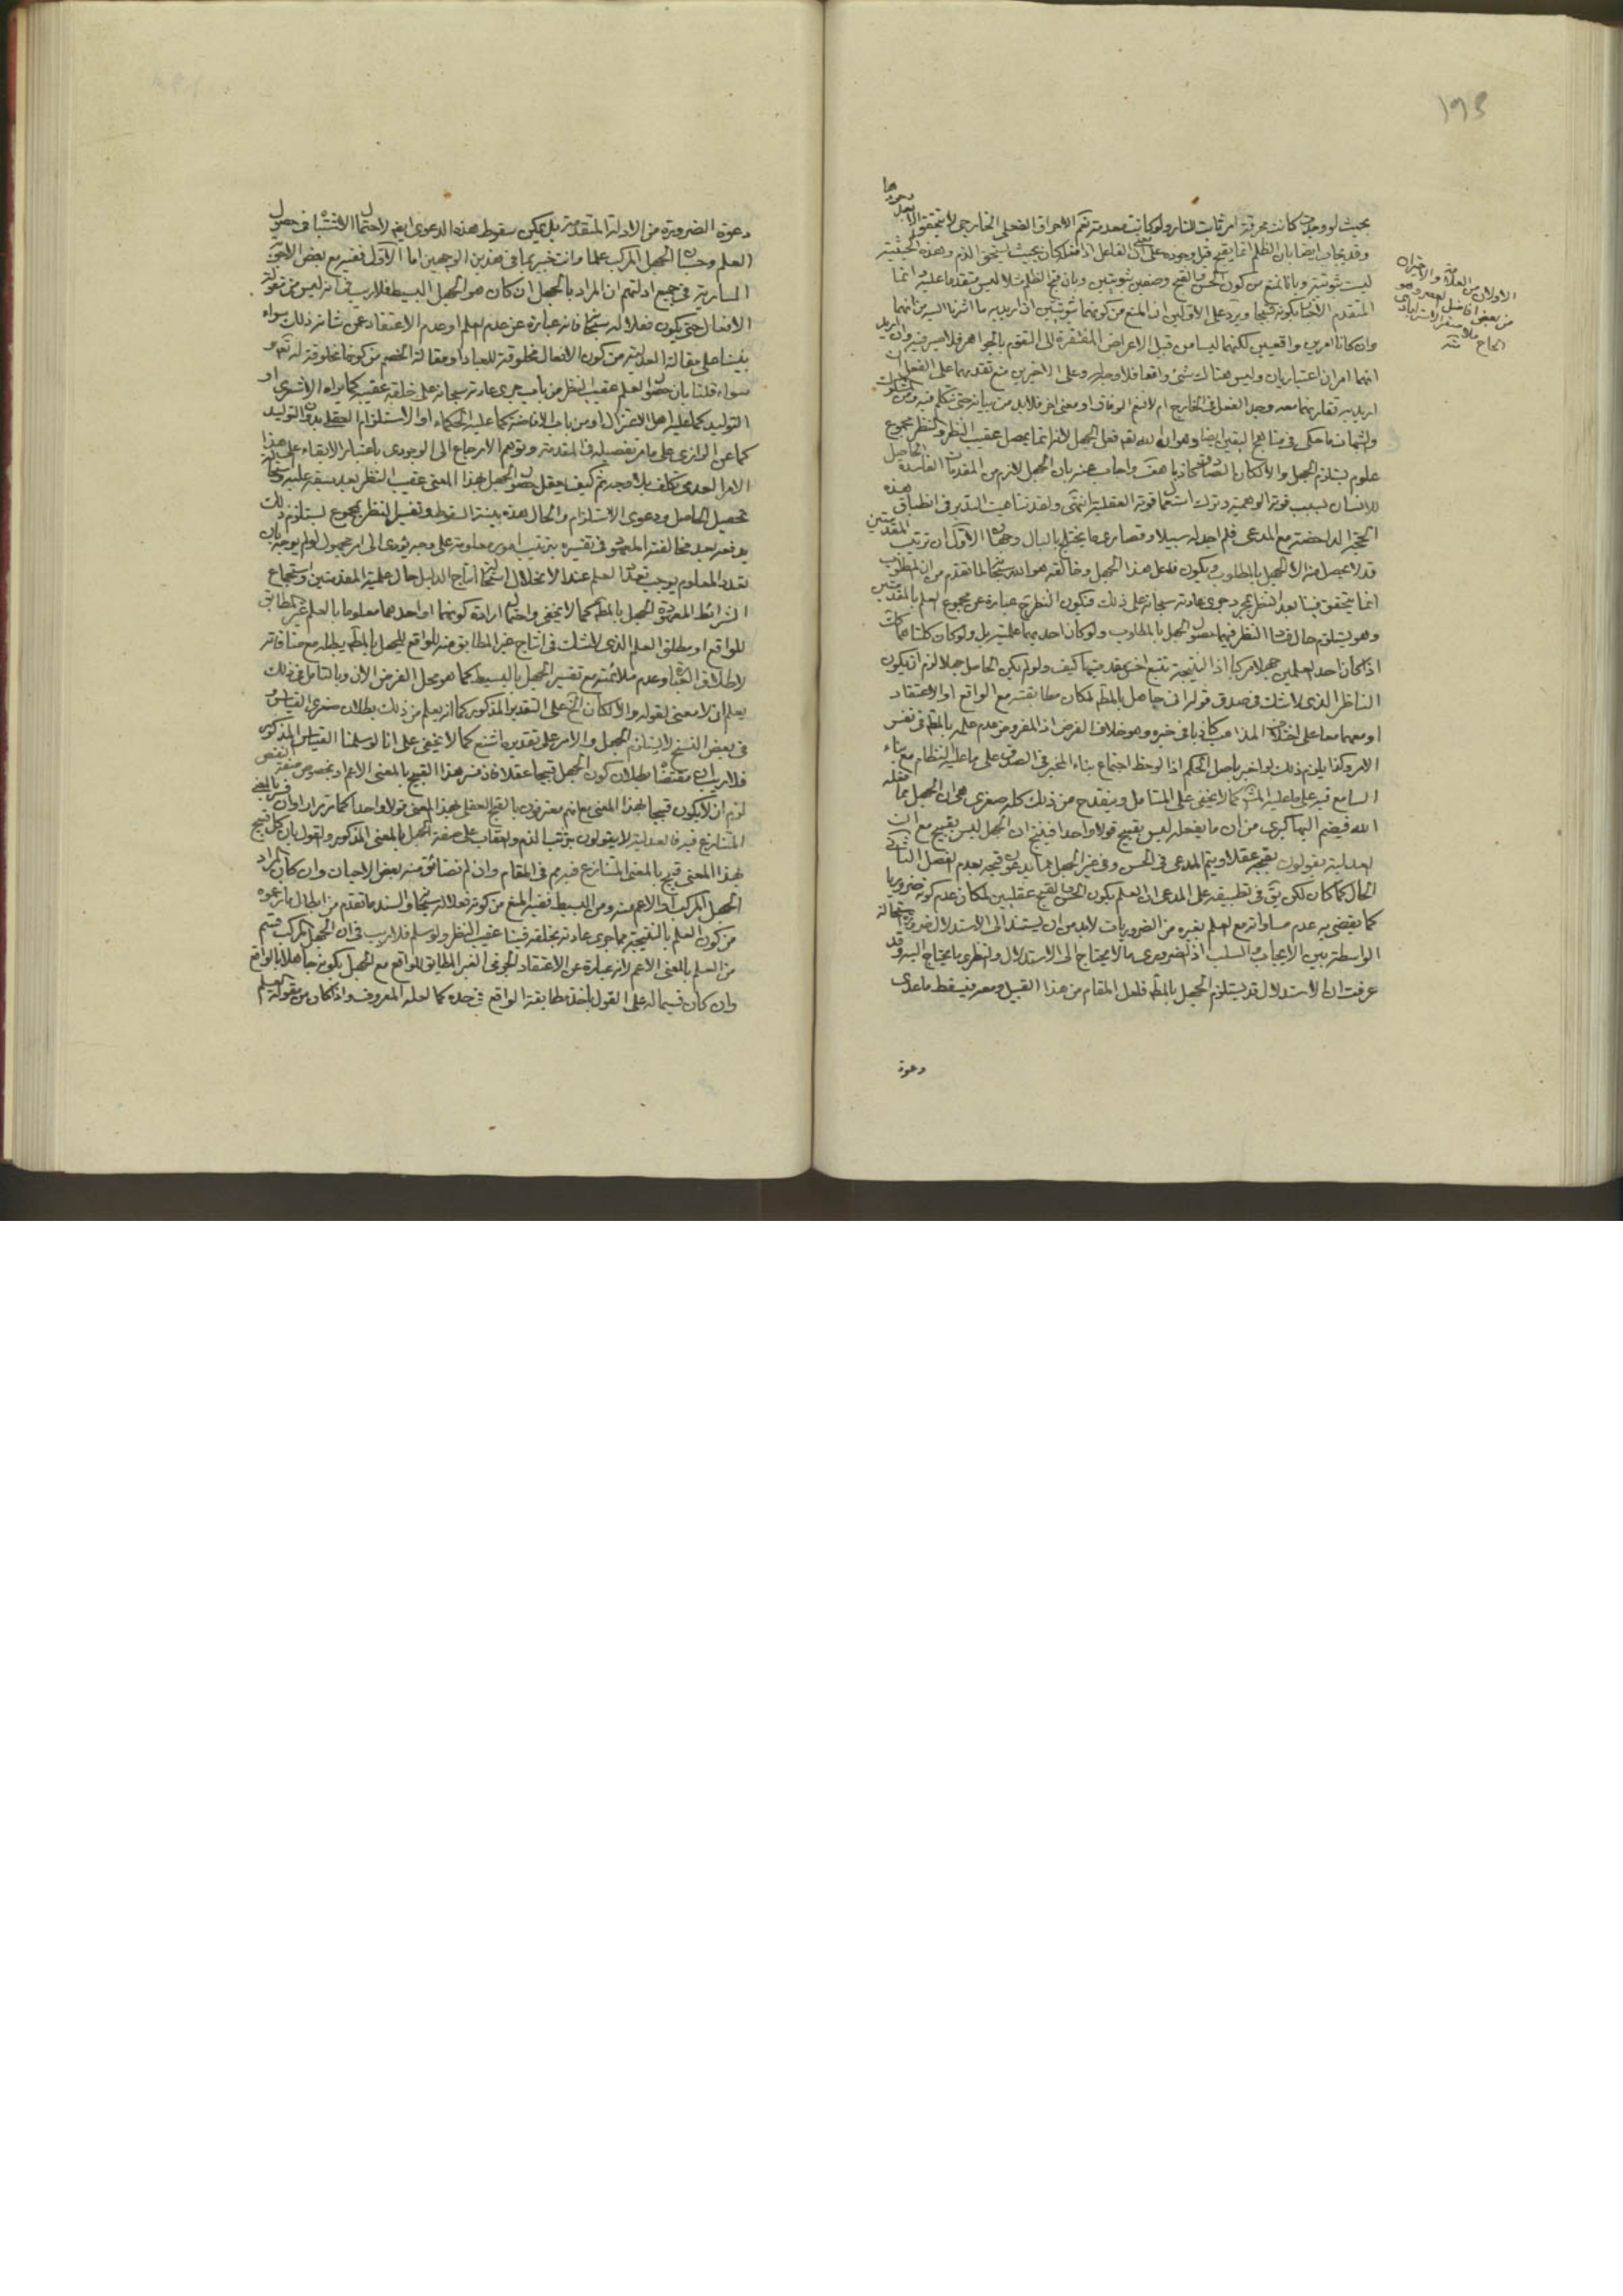 ١٩٣
بحيث لو وجدت كانت محرقة امر ثابت للنار ولو كانت معدومة نعم الاحراق الفعلي الخارجي لا يتحقق الا بعد وجودها
وقد يجاب ايضا بان الظلم انما يقبح قبل وجوده على الفاعل اذا كان بحيث يستحق الذم وهذه الحيثية
ليست ثبوتية وبالمنع من كون الحسن والقبح وصفين ثبوتيين وبان قبح الظلم مثلا ليس متقدما عليه وانما
المتقدم الاخبار بكونه قبيحا ويرد على الاولين ان المنع من كونهما ثبوتيين ان اريد به ما اشرنا اليه من انهما
وان كانا امرين واقعيين لكنهما ليسا من قبل الاعراض المفتقرة الى التقوم بالجواهر فلا ضير فيه وان اريد
انهما امران اعتباريان وليس هناك شئ واقعا فلا وجه له وعلى الاخيرين منع تقدمهما على الفعل ان
اريد به تقاربهما معه وجد الفعل في الخارج ام لا فنعم الوفاق او معنى اخر فلا بد من بيانه حتى نتكلم فيه ومن المشكوك
والشبهات ما حكى في مناهج اليقين ايضا وهو ان الله تعالى فعل الجهل لانه انما يحصل عقيب النظر والنظر مجموع
علوم يستلزم الجهل والا لكان بالتصاف كاذبا هف واجاب عنه بان الجهل لازم من المقدمات الفاسدة الحاصل
للانسان بسبب قوته الوهمية وترك استعمال قوته العقلية انتهى ولقد تناهيت التدبر في انطباق هذه
الحجة الداحضة مع المدعى فلم اجد له سبيلا وقصارى ما يختلج بالبال وجهان الاول ان ترتيب المقدمتين
قد لا يحصل منه الا الجهل بالمطلوب ويكون فاعل هذا الجهل وخالقه هو الله سبحانه لما تقدم من ان المطلوب
انما يتحقق فينا بعد النظر بمجرد جرى عادته سبحانه على ذلك فيكون النظر عبارة عن مجموع العلم بالمقدمتين
وهو يستلزم حال فساد النظر فيهما حصول الجهل بالمطلوب ولو كان احديهما علمية بل ولو كان كلتاهما كك
اذا كان احد العلمين جهلا مركبا اذ النتيجة تتبع اخس مقدمتيها كيف ولو لم يكن الحاصل جهلا لزم ان يكون
الناظر الذي لا شك في صدق قوله اني جاهل بالمط لمكان مطابقته مع الواقع او الاعتقاد
او معهما معا على اختلاف المذاهب كاذبا في خبره وهو خلاف الفرض اذ المفروض عدم علمه بالمط في نفس
الامر وكذا يلزم ذلك لو اخبر باصل الحكم اذا لوحظ اجتماع بناء المخبر في الصدق على ما عليه النظام مع بناء
السامع فيه على ما عليه المش كما لا يخفى على المتامل وينقدح من ذلك كله صغرى هي ان الجهل مما فعله
الله فيضم اليها كبرى من ان ما يفعله ليس بقبيح قولا واحدا فينتج ان الجهل ليس بقبيح مع ان
العدلية يقولون بقبحه عقلا ويتم المدعى في الحسن وفي غير الجهل مما يدعون قبحه بعدم الفصل الثاني
الحال كما كان لكن بقى في تطبيقه على المدعى ان العلم بكون الحسن والقبح عقليين لمكان عدم كونه ضروريا
كما يقضى به عدم مساواته مع العلم بغيره من الضروريات لا بد من ان يستند الى الاستدلال لضرورة استحالة
الواسطة بين الايجاب والسلب اذ الضروري ما لا يحتاج الى الاستدلال والنظري ما يحتاج اليه وقد
عرفت ان الاستدلال قد يستلزم الجهل بالمط فلعل المقام من هذا القبيل ومعه فيسقط ما عدى
دعوة
الاولان من العلامة والاخيران
من بعض افاضل العصر وهو
الحاج ملا جعفر الاسترابادي
منه
دعوة الضرورة من الادلة المتقدمة بل يمكن سقوط هذه الدعوى ايضا لاحتمال الاشتباه في حصول
العلم وحسبان الجهل المركب علما وانت خبير بما في هذين الوجهين اما الاول ففيه مع بعض الاجوبة
السارية في جميع ادلتهم ان المراد بالجهل ان كان هو الجهل البسيط فلا ريب في انه ليس من مقولة
الافعال حتى يكون فعلا له سبحانه فانه عبارة عن عدم العلم او عدم الاعتقاد عن شانه ذلك سواء
بنينا على مقالة العدلية من كون الافعال مخلوقة للعباد او مقالة الخصم من كونها مخلوقة له تعالى و
سواء قلنا بان حصول العلم عقيب النظر من باب جرى عادته سبحانه على خلقه عقيبه كما يراه الاشعرى او
التوليد كما عليه اهل الاعتزال او من باب الافاضة كما عليه الحكماء او الاستلزام العقلي بدون التوليد
كما عن الرازي على ما مر تفصيله في المقدمة وتوهم الارجاع الى الوجودى باعتبار الابقاء على هذا
الامر العدمى تكلف بلا وجه ثم كيف يعقل حصول الجهل بهذا المعنى عقيب النظر بعد سبقه عليه واستحالة
تحصيل الحاصل ودعوى الاستلزام والحال هذه بينة السقوط وتفسير النظر بمجموع يستلزم ذلك
يدفعه بعد مخالفته المعهود في تفسيره بترتيب امور معلومة على وجه يؤدى الى امر مجهول لو لم يوجه بان
تعدد المعلوم يوجب تعدد العلم عند الانحلال استحالة انتاج الدليل حال علمية المقدمتين واستجماع
الشرائط المقررة الجهل بالمط كما لا يخفى واحتمال ارادة كونهما او احدهما معلوما بالعلم غير المطابق
للواقع او مطلق العلم الذي لا شك في انتاج غير المطابق منه للواقع للجهل بالمط يبطله مع منافاته
لاطلاق العبارة وعدم ملائمته مع تفسير الجهل بالبسيط كما هو محل الفرض الان وبالتامل في ذلك
يعلم ان لا معنى لقوله والا لكان الخ على التقدير المذكور كما انه يعلم من ذلك بطلان صغرى القياس و
في بعض النسخ لا يستلزم الجهل والامر على تقديره اشنع كما لا يخفى على انا لو سلمنا القياس المذكور
فلا ريب ان مقتضاه بطلان كون الجهل قبيحا عقلا فان فسر هذا القبح بالمعنى الاعم او بخصوص صفة النقص
لزم ان لا يكون قبيحا بهذا المعنى مع انهم معترفون بالقبح العقلي بهذا المعنى قولا واحدا كما مر مرارا وان فسر بالمعنى
المتنازع فيه فالعدلية لا يقولون بترتب الذم والعقاب على صفة الجهل بالمعنى المذكور والقول بان كل قبيح
بهذا المعنى قبيح بالمعنى المتنازع فيه يم في المقام وان لم نضائق منه بعض الاحيان وان كان المراد
الجهل المركب او الاعم منه ومن البسيط ففيه المنع من كونه فعلا له سبحانه والسند ما تقدم من ابطال ما زعموه
من كون العلم بالنتيجة مما جرى عادته بخلقه فينا عقيب النظر ولو سلم فلا ريب في ان الجهل المركب قسم
من العلم بالمعنى الاعم لانه عبارة عن الاعتقاد الجزمى الغير المطابق للواقع مع الجهل بكونه جاهلا بالواقع
وان كان قسيما له على القول باخذ مطابقة الواقع في حده كما لعله المعروف واذا كان من مقولة العلم